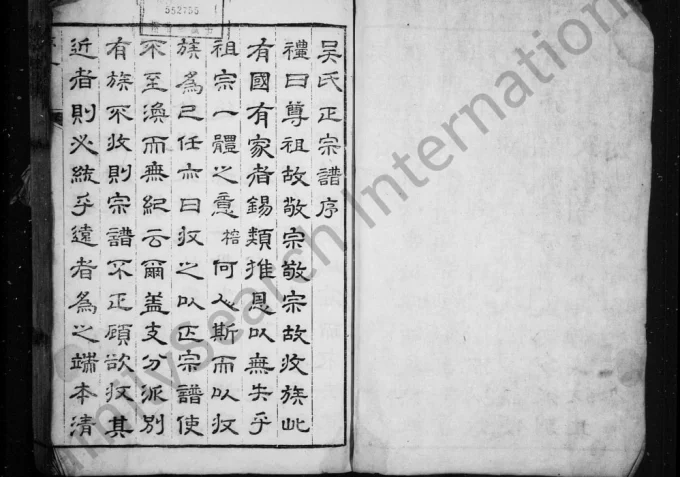 552755
吴氏正宗譜序
禮曰尊祖故敬宗敬宗故收族此
有國有家者錫類推恩以無失乎
祖宗一體之意榕何人斯而以收
族為己任亦曰收之以正宗譜使
不至渙而無紀云爾蓋支分派別
有族不收則宗譜不正顧欲收其
近者則必統乎遠者為之端本清
FamilySearch International